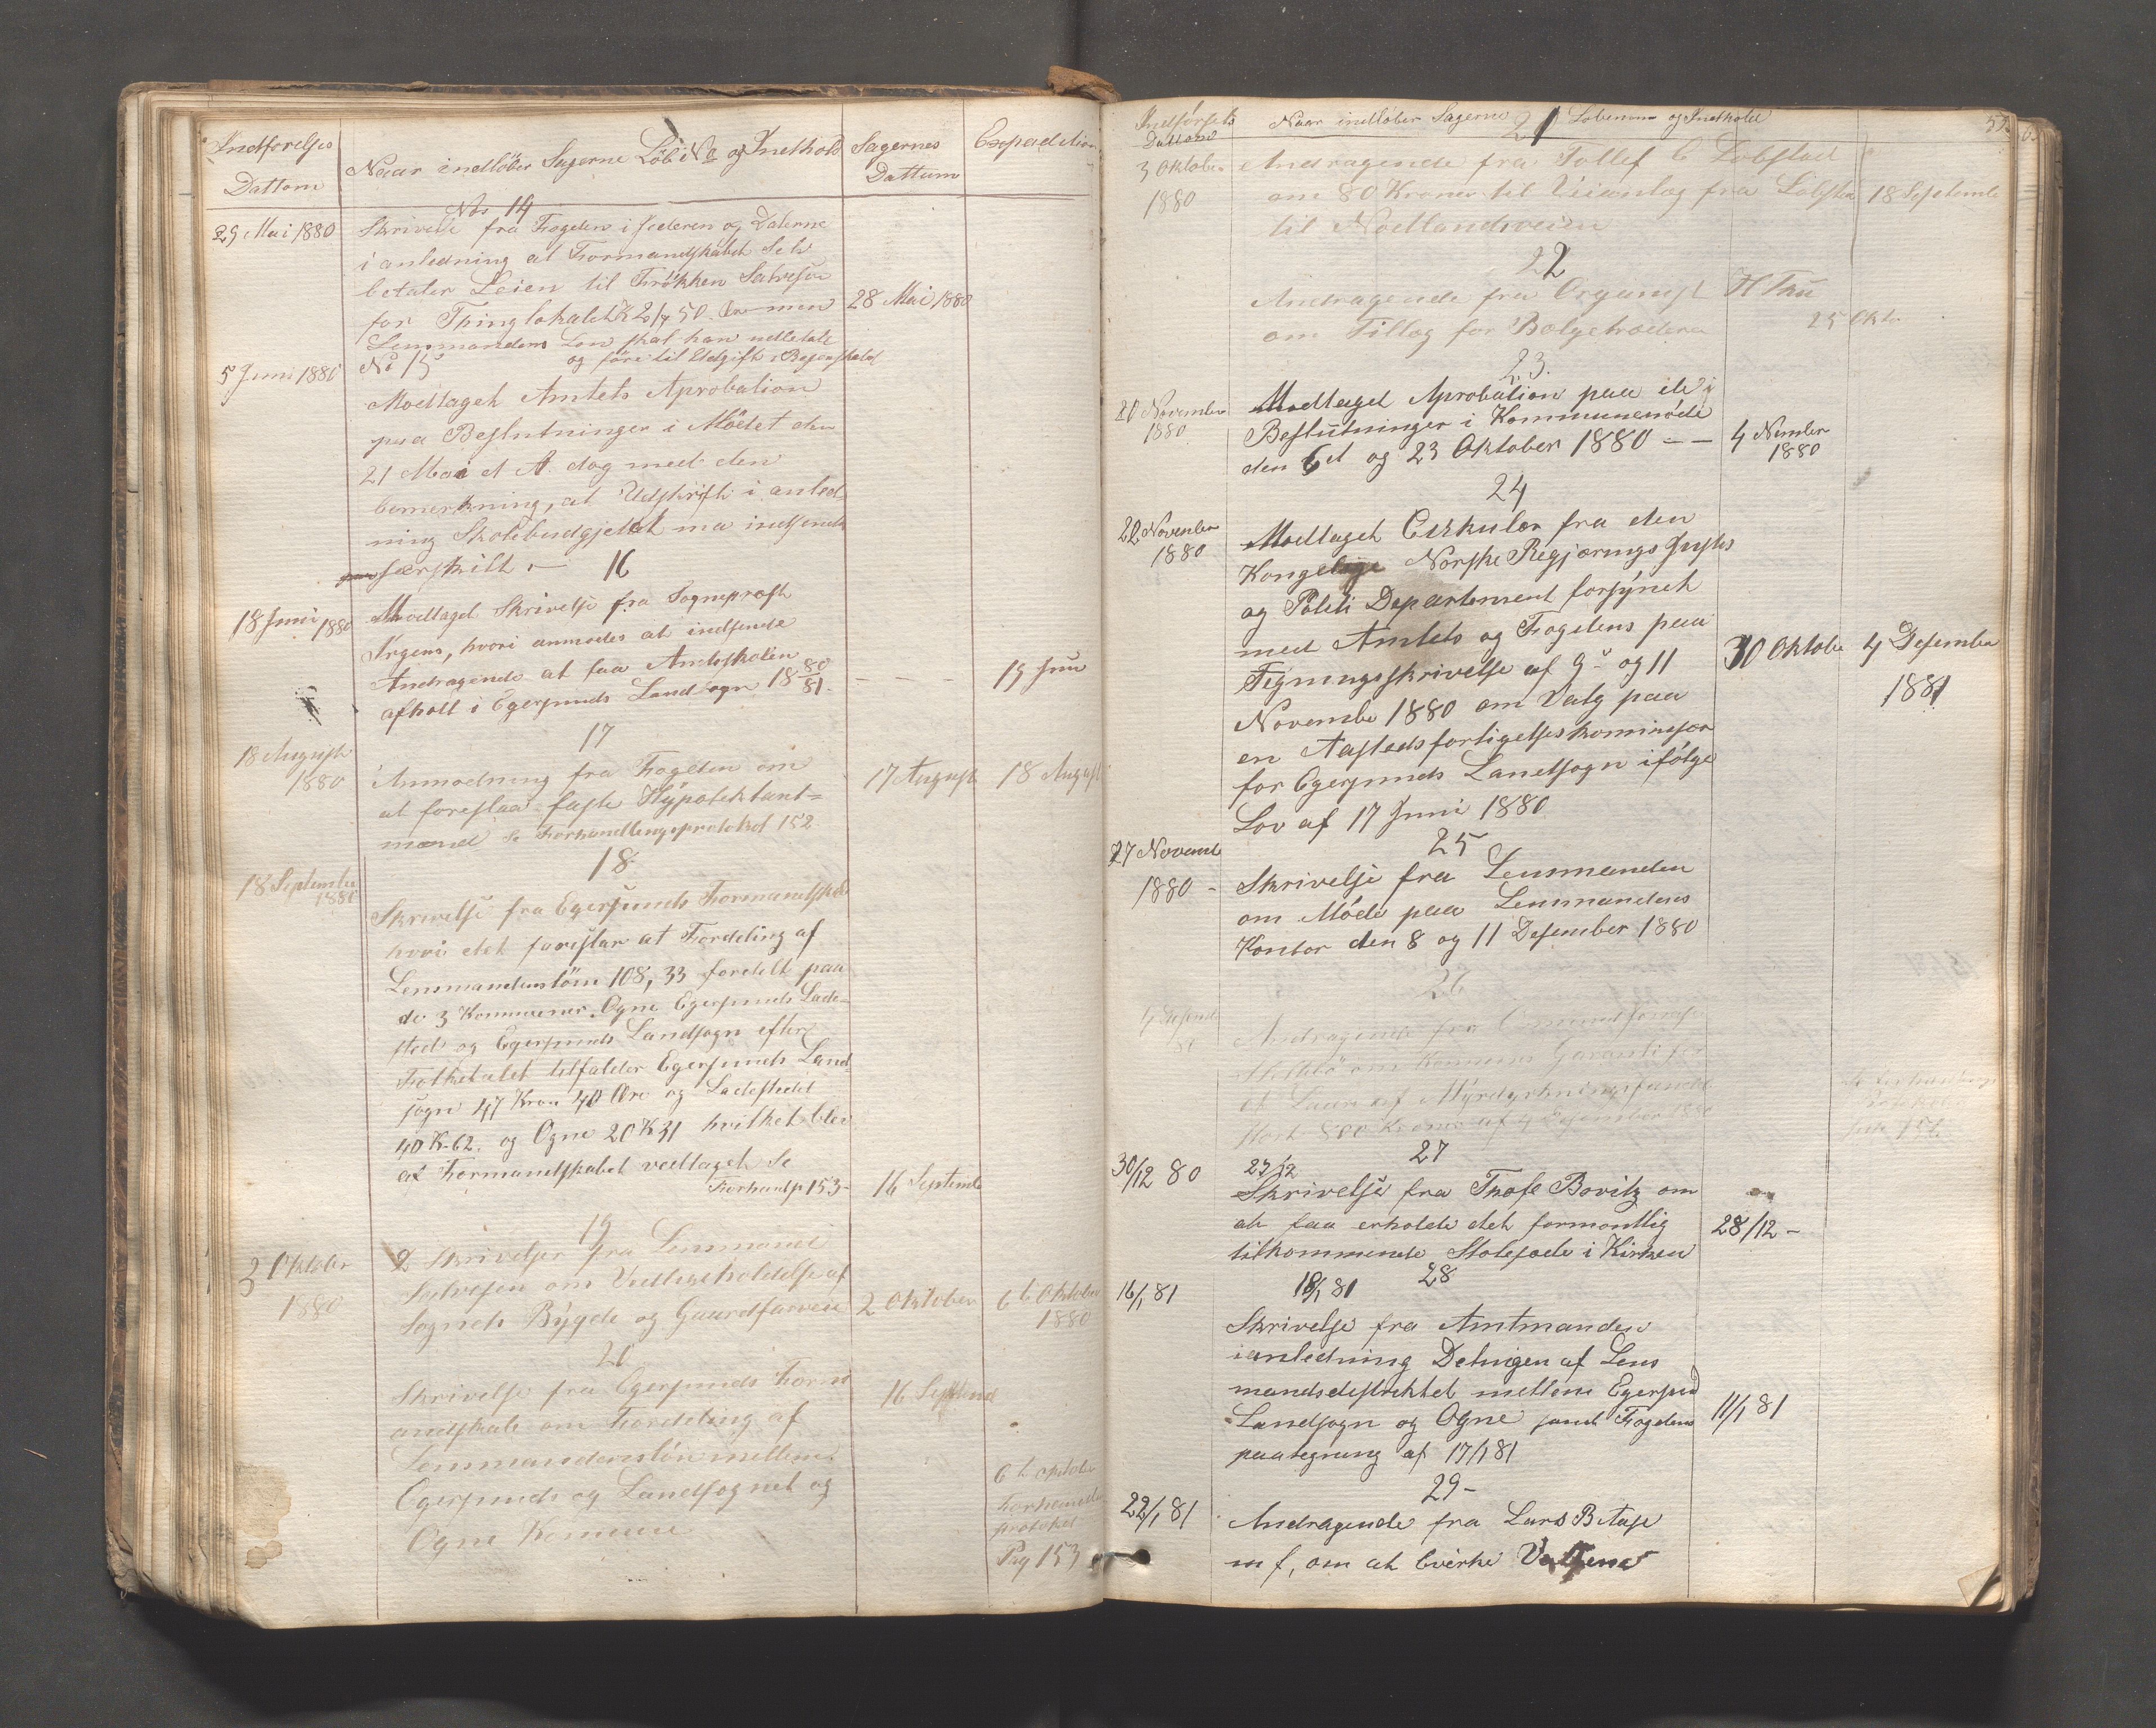 Indførelses Dattom
Naar indløber Sagerne Løbe No og Indhold
Sagernes Dattum
Expedition
No 14
29 Mai 1880
Skrivelse fra Fogden i Jederen og Dalerne
i anledning at Formandskabet Selv
betaler Leien til Frøkken Salvesen
for Thinglokalet men
28 Mai 1880
Lensmandens Løn skal han udbetale
og føre til Udgift i Regenskabet
No 15
5 Juni 1880
Modtaget Amtets Aprobation
paa Beslutninger i Mødet den
21 Mai d A. dog med den
bemerkning, at Udskrift i anled=
ning Skolebudgjettet ma indsendes
særskilt. —
16
18 Juni 1880
Modtaget Skrivelse fra Sogneprest
Irgens, hvori anmodes at indsende
Andragende at faa Amtsskolen
afholt i Egersunds Landsogn 1880/81.
19 Juni
17
18 August
1880
Anmodning fra Fogden om
at foreslaa faste Hypotektant=
mænd Se Forhandlingsprotokol 152
17 August
18 August
18
18 September
1880
Skrivelse fra Egersunds Formandskab
hvori det foreslar at Fordeling af
Lensmandensløn 108,33 fordelt paa
de 3 Kommuner. Ogne Egersunds Lade=
sted og Egersunds Landsogn efter
Folketalet tilfalder Egersunds Land
sogn 47 Kron 40 Øre og Ladestedet
40 K. 62. og Ogne 20 K 31 hvilket blev
af Formandskabet vedtaget Se
Forhandp 153 —
16 Septembe
19
3 Oktober
1880
2 Skrivelser fra Lensmand
Salvesen om Vedligeholdelse af
Sognets Bygde og Gaardfarveie
2 Oktober
6t Oktober
1880
20
Skrivelse fra Egersunds Form
andskab om Fordeling af
16 Septemb
Lensmandensløn mellem
Egersunds og Landsognet og
Ogne Komune
6t Oktober
Forhandl
protokol
Pag 153
Indførsels Dattom
Naar indløber Sagerne Løbenum og Indhold
21
3 Oktober
1880
Andragende fra Tollef C Løbstad
om 80 Kroner til Veianlæg fra Løbsta
18 Septembe
til Nodlandsveien
22
Andragende fra Organist H Thu
om Tillæg for Bælgetræderen
25 Okto
23.
20 November
1880
Modtaget Aprobation paa de i
Beslutninger i Kommunemøde
den 6t og 23 Oktober 1880 — —
4 November
1880
24
22 November
1880
Modtaget Cirkulær fra den
Kongelige Norske Regjerings Justis
og Politi Departement forsynet
med Amtets og Fogdens paa
Tegningsskrivelse af 9 og 11
Novembe 1880 om Valg paa
30 Oktobe
4 Desember
1881
en Aastedsforligelseskomisær
for Egersunds Landsogn ifølge
Lov af 17 Juni 1880
25
27 Novembe
1880 -
Skrivelse fra Lensmanden
om Møde paa Lensmandens
Kontor den 8 og 11 Desember 1880
26
4 Desemb
80
Andragende fra Omund
om Komunens Garanti for
et Laan af Myrdyrkningsfondet
Stort 800 Kroner af 4 Desember 1880
27
30/12 80
27/12
Skrivelse fra Thofe Bovitz om
at faa erholde det formentlig
tilkommende Stolesæde i Kirken
28/12 -
28
16/1 81
18/1 81
Skrivelse fra Amtmanden
i anledning Delingen af Lens
mandsdestriktet mellem Egersund
Landsogn og Ogne samt Fogdens
paategning af 17/1 81
11/1 81
29 -
22/1 81
Andragende fra Lars B
m f, om at